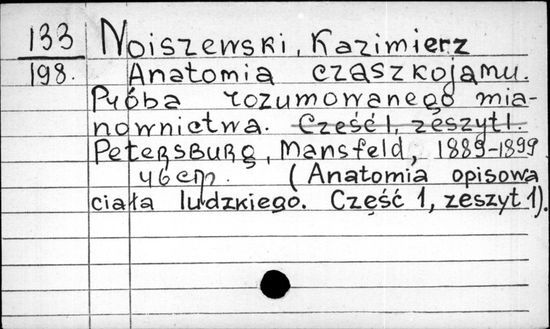 133 Noiszewski, Kazimierz
198. Anatomia czaszkojamu.
Próba rozumowanego mia-
nownictwa. Cześć 1, zeszyt 1.
Petersburg, Mansfeld, 1889-1899
46 cm. (Anatomia opisowa
ciała ludzkiego. Część 1, zeszyt 1).